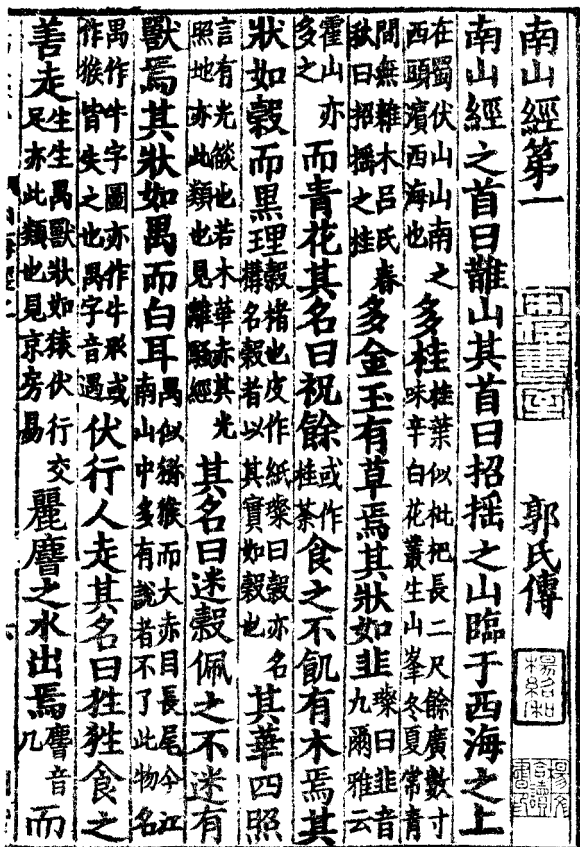 南山經第一 郭氏傳 楊紹和
南山經之首曰䧿山其首曰招揺之山臨于西海之上
在蜀伏山山南之西頭濱西海也多桂桂葉似枇杷長二尺餘廣數寸味辛白花叢生山峯冬夏常青
間無雜木吕氏春秋曰招揺之桂多金玉有草焉其狀如韭璨曰韭音九爾雅云
霍山亦多之而青花其名曰祝餘或作桂荼食之不飢有木焉其
狀如榖而黒理榖楮也皮作紙璨曰榖亦名構名榖者以其實如榖也其華四照
言有光燄也若木華赤其光照地亦此類也見離騷經其名曰迷榖佩之不迷有
獸焉其狀如禺而白耳禺似獼猴而大赤目長尾今江南山中多有說者不了此物名
禺作牛字圖亦作牛形或作猴皆失之也禺字音遇伏行人走其名曰狌狌食之
善走生生禺獸狀如猿伏行交足亦此類也見京房易麗𪊨之水出焉𪊨音几而